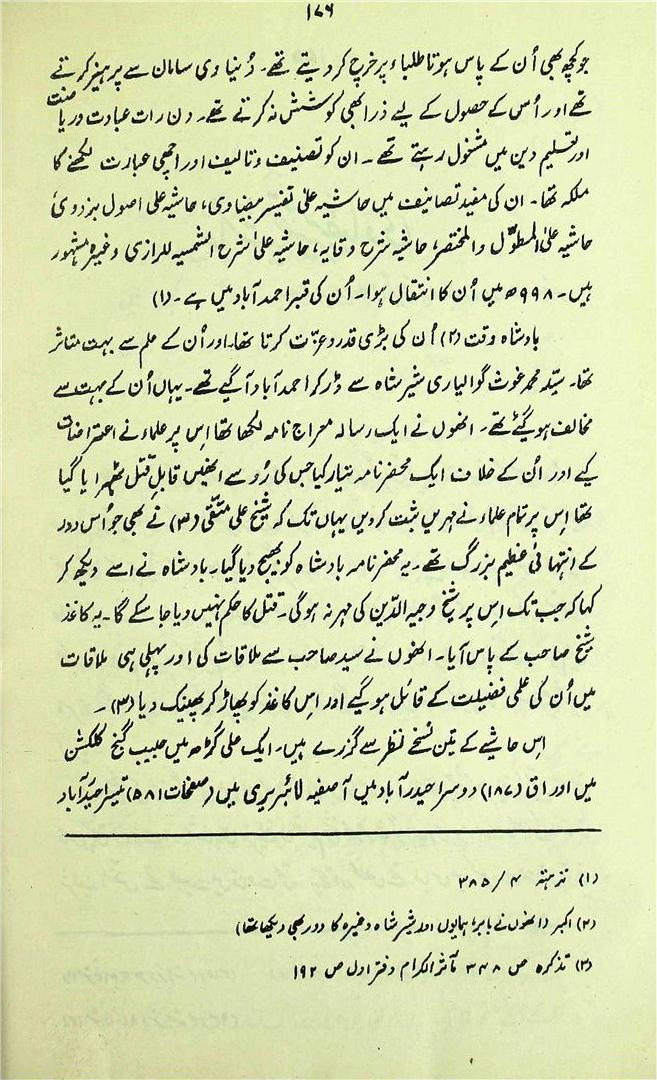 ۱۷۶
جو کچھ بھی اُن کے پاس ہوتا طلباء پر خرچ کر دیتے تھے۔ دُنیا وی سامان سے پرہیز کرتے
تھے اور اُس کے حصول کے لیے ذرا بھی کوشش نہ کرتے تھے۔ دن رات عبادت و ریاضت
اور تسلیم دین میں مشغول رہتے تھے ۔ ان کو تصنیف و تالیف اور اچھی عبارت لکھنے کا
ملکہ تھا۔ ان کی مفید تصانیف میں حاشیہ علیٰ تفسیر بیضاوی، حاشیہ علی اصول بزدوی
حاشیہ علیٰ المطوّل والمختصر، حاشیہ شرح وقایہ، حاشیہ علیٰ شرح الشمسیہ للرازی وغیرہ مشہور
ہیں۔ ۹۹۸ھ میں اُن کا انتقال ہوا۔ اُن کی قبر احمد آباد میں ہے ۔ (۱)
بادشاہ وقت (۲) اُن کی بڑی قدر و عزّت کرتا تھا۔ اور اُن کے علم سے بہت متاثر
تھا۔ سیّد محمد غوث گوالیاری شیر شاہ سے ڈر کر احمد آباد آ گیے تھے۔ یہاں اُن کے بہت سے
مخالف ہو گیٔے تھے۔ انھوں نے ایک رسالہ معراج نامہ لکھا تھا اِس پر علماء نے اعتراضات
کیے اور اُن کے خلاف ایک محضر نامہ تیار کیا جس کی رُو سے انھیں قابلِ قتل ٹھہرایا گیا
تھا اِس پر تمام علماء نے مہریں ثبت کر دیں یہاں تک کہ شیخ علی متقی (۳) نے بھی جو اُس دور
کے انتہائی عظیم بزرگ تھے۔ یہ محضر نامہ بادشاہ کو بھیج دیا گیا۔ بادشاہ نے اسے دیکھ کر
کہا کہ جب تک اِس پر شیخ وجیہ الدّین کی مہر نہ ہو گی۔ قتل کا حکم نہیں دیا جا سکے گا۔ یہ کاغذ
شیخ صاحب کے پاس آیا۔ انھوں نے سید صاحب سے ملاقات کی اور پہلی ہی ملاقات
میں اُن کی علمی فضیلت کے قائل ہو گیے اور اِس کاغذ کو پھاڑ کر پھینک دیا (۳) ۔
اِس حاشیے کے تین نُسخے نظر سے گزرے ہیں۔ ایک علی گڑھ میں حبیب گنج کلکشن
میں اوراق (۱۸۷) دوسرا حیدر آباد میں آصفیہ لائبریری میں (صفحات ۵۸۱) تیسرا حیدرآباد
(۱) نزہتہ ۴ / ۳۸۵
(۲) اکبر (انھوں نے بابر، ہمایوں اور شیر شاہ وغیرہ کا دور بھی دیکھا تھا)
(۳) تذکرہ ص ۳۴۸ مآثر الکرام دفتر اول ص ۱۹۲